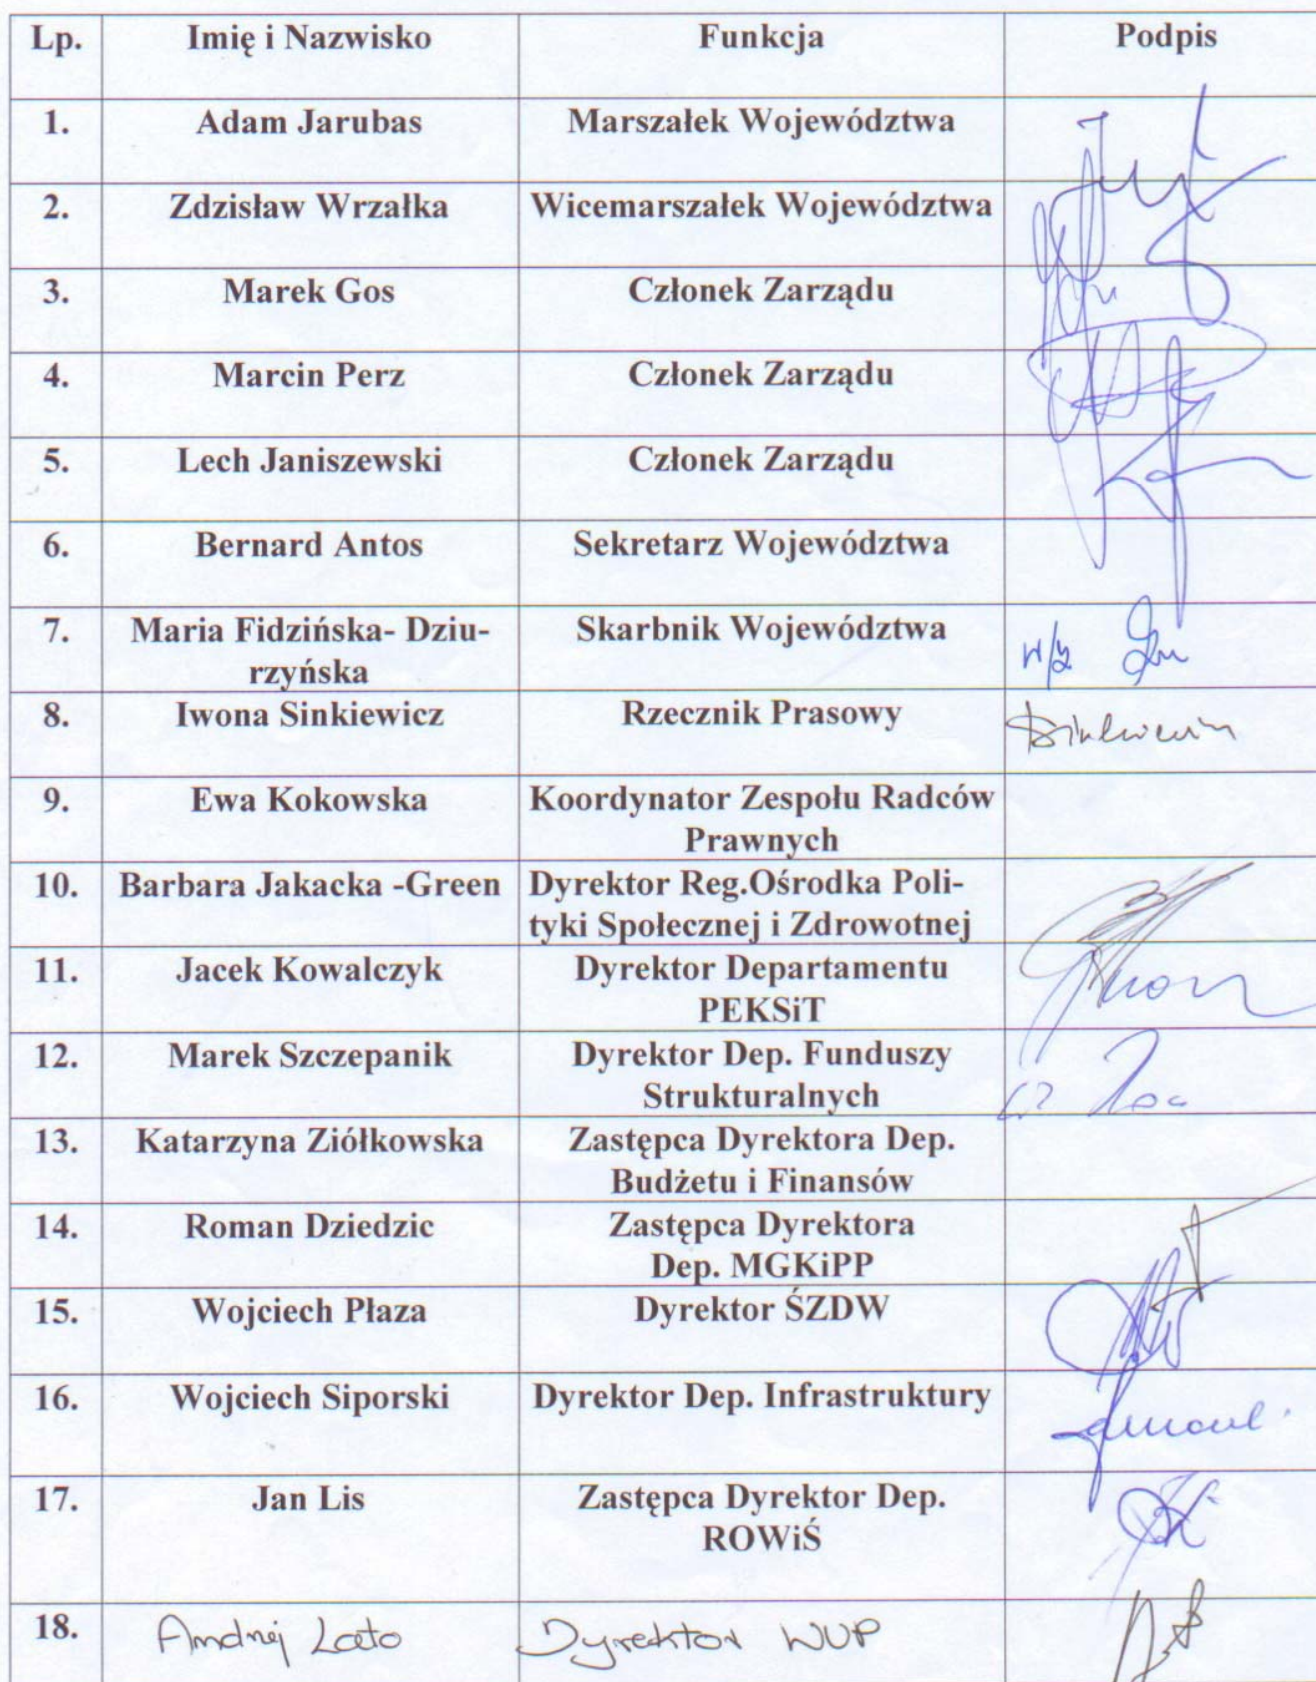 Lp. Imię i Nazwisko Funkcja Podpis
1. Adam Jarubas Marszałek Województwa
2. Zdzisław Wrzałka Wicemarszałek Województwa
3. Marek Gos Członek Zarządu
4. Marcin Perz Członek Zarządu
5. Lech Janiszewski Członek Zarządu
6. Bernard Antos Sekretarz Województwa
7. Maria Fidzińska- Dziu- Skarbnik Województwa
rzyńska
8. Iwona Sinkiewicz Rzecznik Prasowy
9. Ewa Kokowska Koordynator Zespołu Radców
Prawnych
10. Barbara Jakacka -Green Dyrektor Reg.Ośrodka Poli-
tyki Społecznej i Zdrowotnej
11. Jacek Kowalczyk Dyrektor Departamentu
PEKSiT
12. Marek Szczepanik Dyrektor Dep. Funduszy
Strukturalnych
13. Katarzyna Ziółkowska Zastępca Dyrektora Dep.
Budżetu i Finansów
14. Roman Dziedzic Zastępca Dyrektora
Dep. MGKiPP
15. Wojciech Płaza Dyrektor ŚZDW
16. Wojciech Siporski Dyrektor Dep. Infrastruktury
17. Jan Lis Zastępca Dyrektor Dep.
ROWiŚ
18. Andrzej Lato Dyrektor WUP